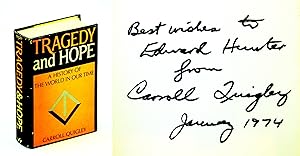 TRAGEDY & HOPE
TRAGEDY
and HOPE
A HISTORY OF
THE WORLD IN OUR TIME
CARROLL QUIGLEY
Best wishes to
Edward Hunter
from
Carroll Quigley
January 1974